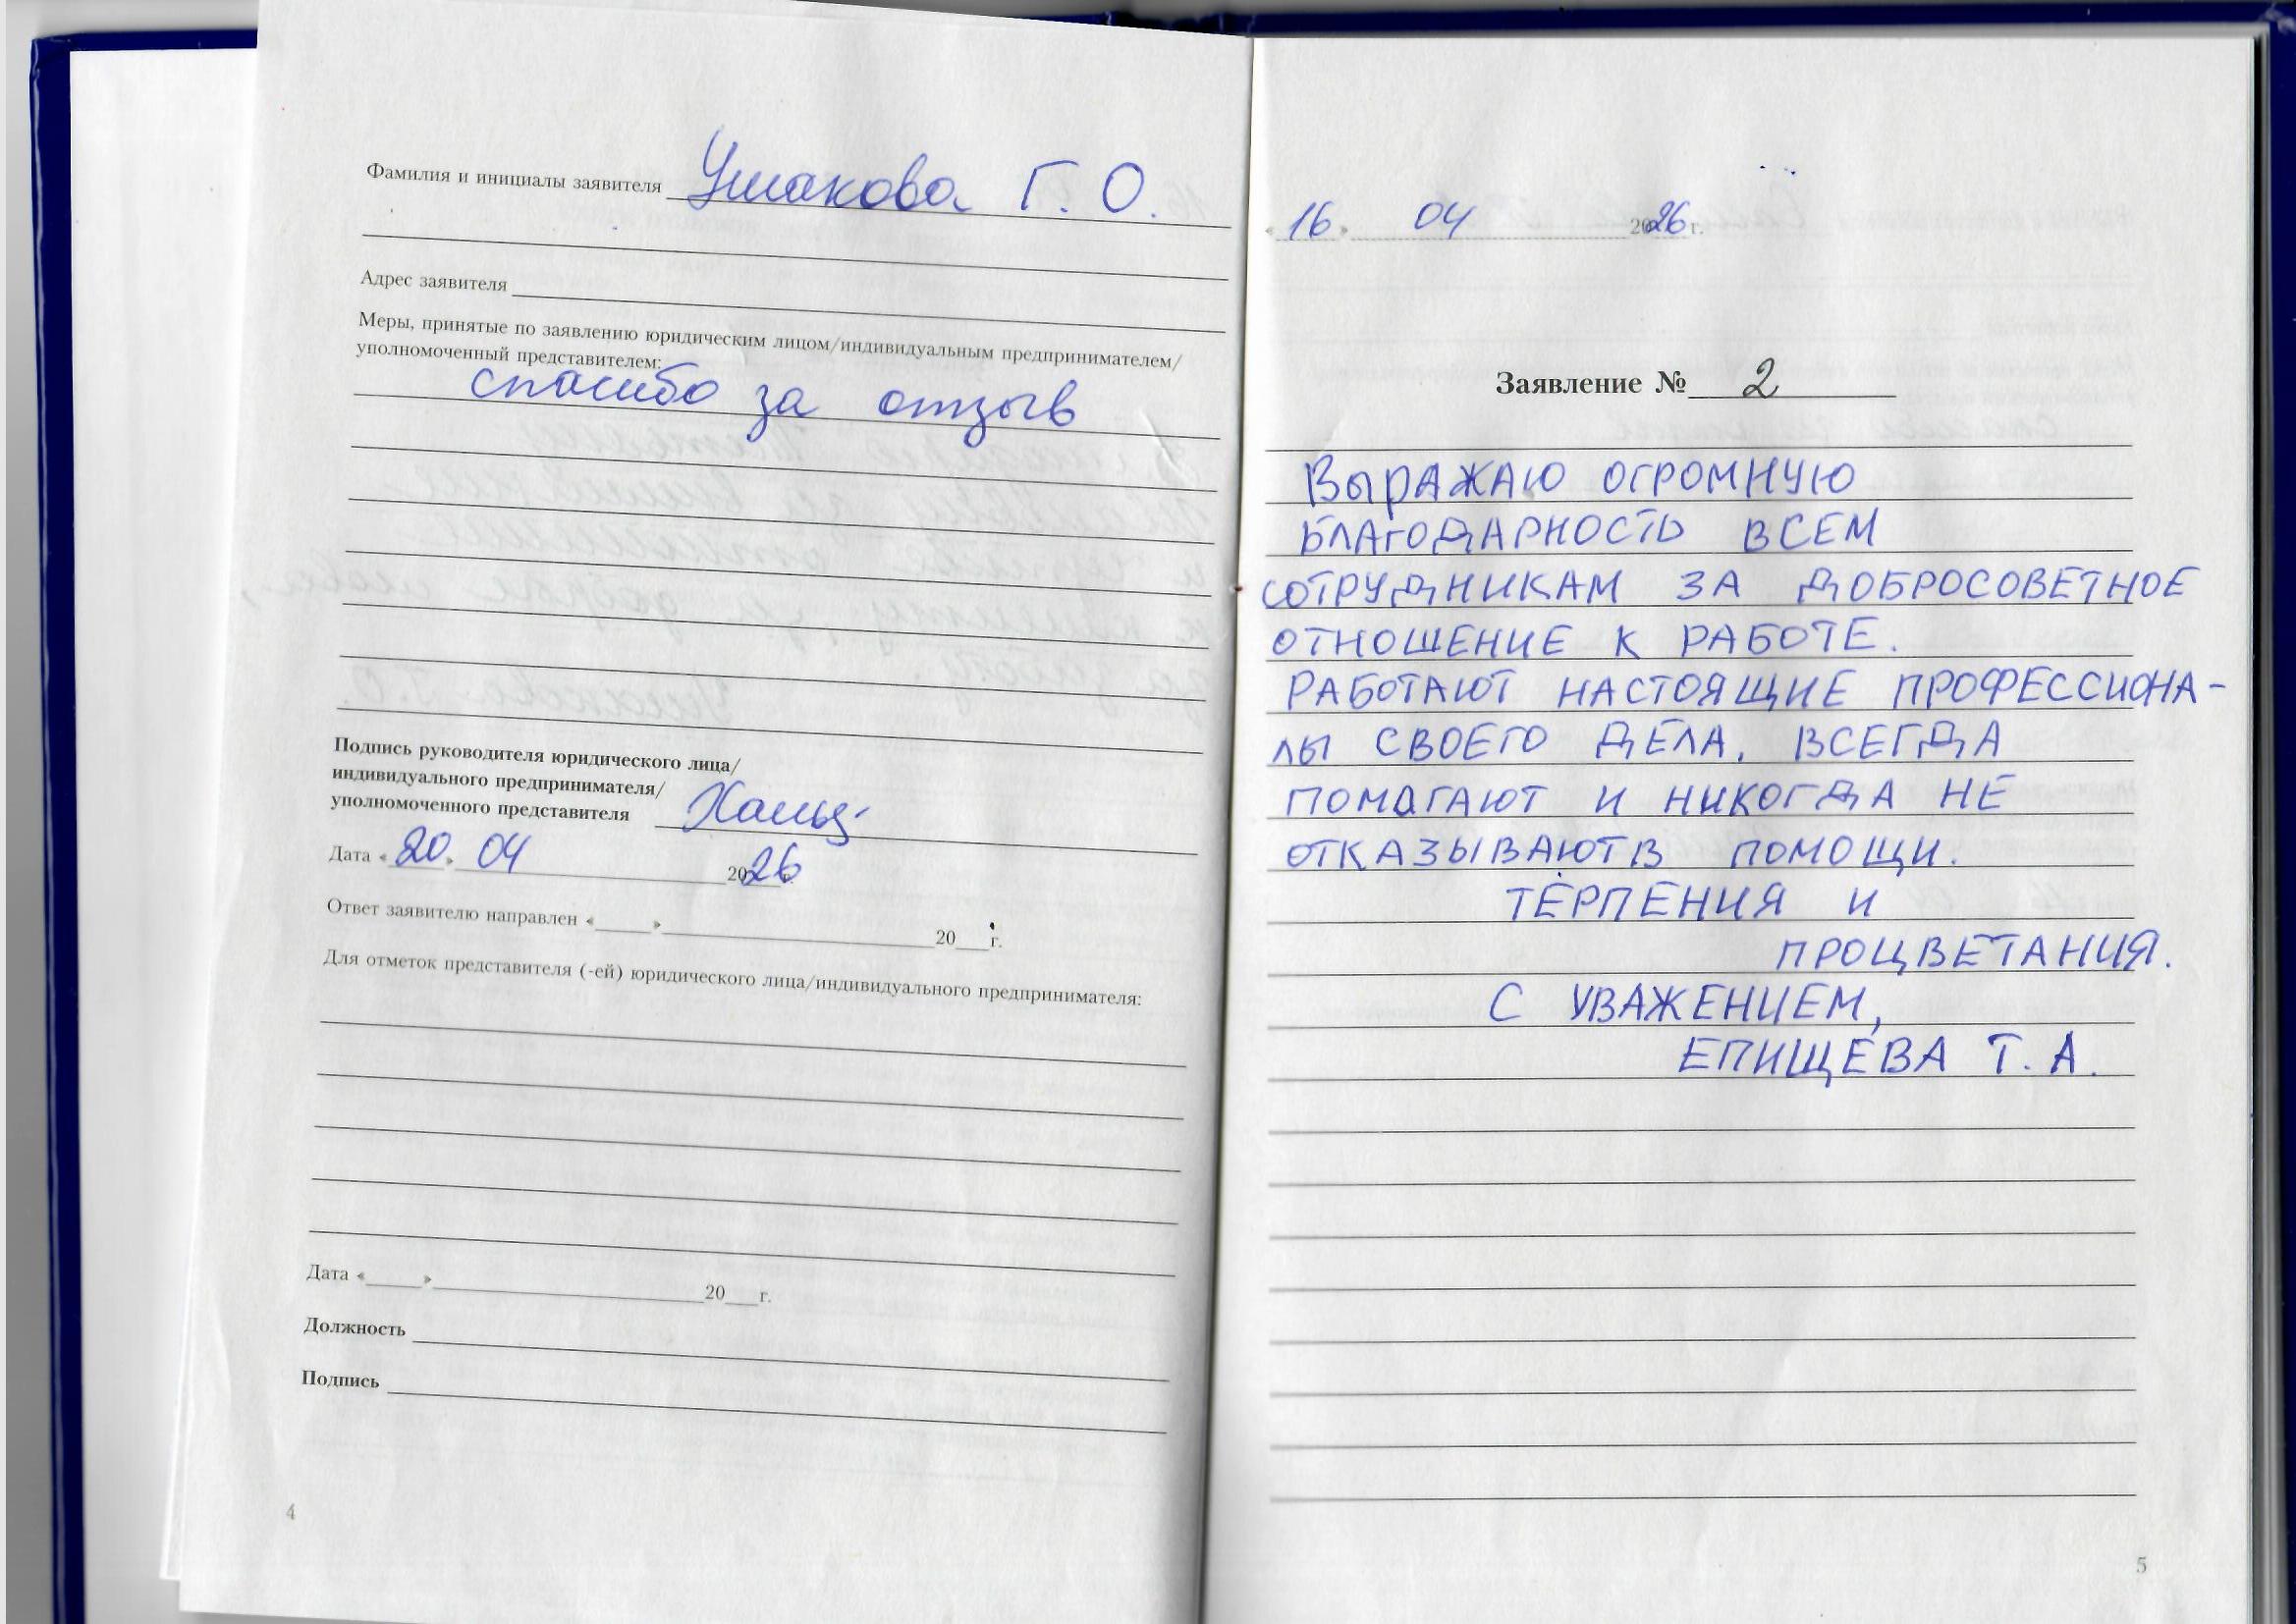 Фамилия и инициалы заявителя Ушакова Г. О.
Адрес заявителя
Меры, принятые по заявлению юридическим лицом/индивидуальным предпринимателем/
уполномоченный представителем:
спасибо за отзыв
Подпись руководителя юридического лица/
индивидуального предпринимателя/
уполномоченного представителя
Дата «20» 04 2026 г.
Ответ заявителю направлен « » 20 г.
Для отметок представителя (-ей) юридического лица/индивидуального предпринимателя:
Дата « » 20 г.
Должность
Подпись
4
«16» 04 2026 г.
Заявление № 2
Выражаю огромную
благодарность всем
сотрудникам за добросоветное
отношение к работе.
Работают настоящие профессиона-
лы своего дела. Всегда
помагают и никогда не
отказывают в помощи.
Терпения и
процветания.
С уважением,
Епищева Т. А.
5